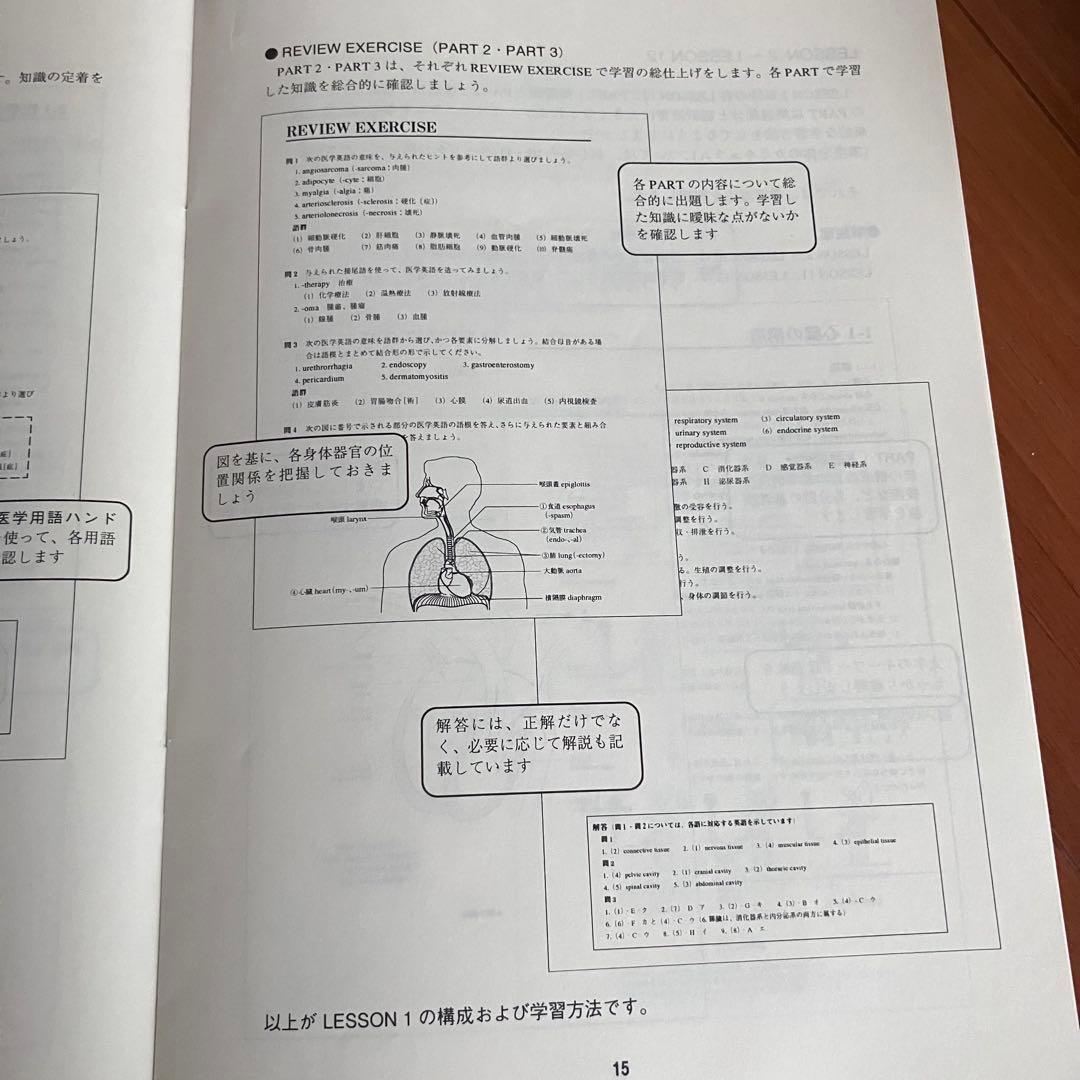 す。知識の定着を
ましょう。
より選び
医学用語ハンド
使って、各用語
認します
● REVIEW EXERCISE（PART 2・PART 3）
PART 2・PART 3 は、それぞれ REVIEW EXERCISE で学習の総仕上げをします。各 PART で学習
した知識を総合的に確認しましょう。
REVIEW EXERCISE
問1 次の医学英語の意味を、与えられたヒントを参考にして語群より選びましょう。
1. angiosarcoma (-sarcoma：肉腫)
2. adipocyte (-cyte：細胞)
3. myalgia (-algia：痛)
4. arteriosclerosis (-sclerosis：硬化［症］)
5. arteriolonecrosis (-necrosis：壊死)
語群
(1) 細動脈硬化 (2) 肝細胞 (3) 静脈壊死 (4) 血管肉腫 (5) 細動脈壊死
(6) 骨肉腫 (7) 筋肉痛 (8) 脂肪細胞 (9) 動脈硬化 (10) 脊髄痛
問2 与えられた接尾語を使って、医学英語を造ってみましょう。
1. -therapy 治療
(1) 化学療法 (2) 温熱療法 (3) 放射線療法
2. -oma 腫瘍、腫瘤
(1) 線腫 (2) 骨腫 (3) 血腫
問3 次の医学英語の意味を語群から選び、かつ各要素に分解しましょう。結合母音がある場
合は語根とまとめて結合形の形で示してください。
1. urethrorrhagia 2. endoscopy 3. gastroenterostomy
4. pericardium 5. dermatomyositis
語群
(1) 皮膚筋炎 (2) 胃腸吻合［術］ (3) 心膜 (4) 尿道出血 (5) 内視鏡検査
問4 次の図に番号で示される部分の医学英語の語根を答え、さらに与えられた要素と組み合
を答えましょう。
喉頭蓋 epiglottis
①食道 esophagus
(-spasm)
喉頭 larynx
②気管 trachea
(endo-､-al)
③肺 lung (-ectomy)
大動脈 aorta
④心臓 heart (my-､-um)
横隔膜 diaphragm
各 PART の内容について総
合的に出題します。学習し
た知識に曖昧な点がないか
を確認します
図を基に、各身体器官の位
置関係を把握しておきま
しょう
respiratory system (3) circulatory system
urinary system (6) endocrine system
reproductive system
器系 C 消化器系 D 感覚器系 E 神経系
器系 H 泌尿器系
激の受容を行う。
調整を行う。
収・排泄を行う。
う。
る。生殖の調整を行う。
行う。
、身体の調節を行う。
解答には、正解だけでな
く、必要に応じて解説も記
載しています
解答（問1・問2については、各語に対応する英語を示しています）
問1
1. (2) connective tissue 2. (1) nervous tissue 3. (4) muscular tissue 4. (3) epithelial tissue
問2
1. (4) pelvic cavity 2. (1) cranial cavity 3. (2) thoracic cavity
4. (5) spinal cavity 5. (3) abdominal cavity
問3
1. (1)-E-ク 2. (7) D ア 3. (2)-G-キ 4. (3)-B オ 5. (4)-C ウ
6. (6)-F カ と (4)-C ウ (6. 膵臓は、消化器系と内分泌系の両方に属する)
7. (4)-C ウ 8. (5)-H イ 9. (8)-A エ
以上が LESSON 1 の構成および学習方法です。
15